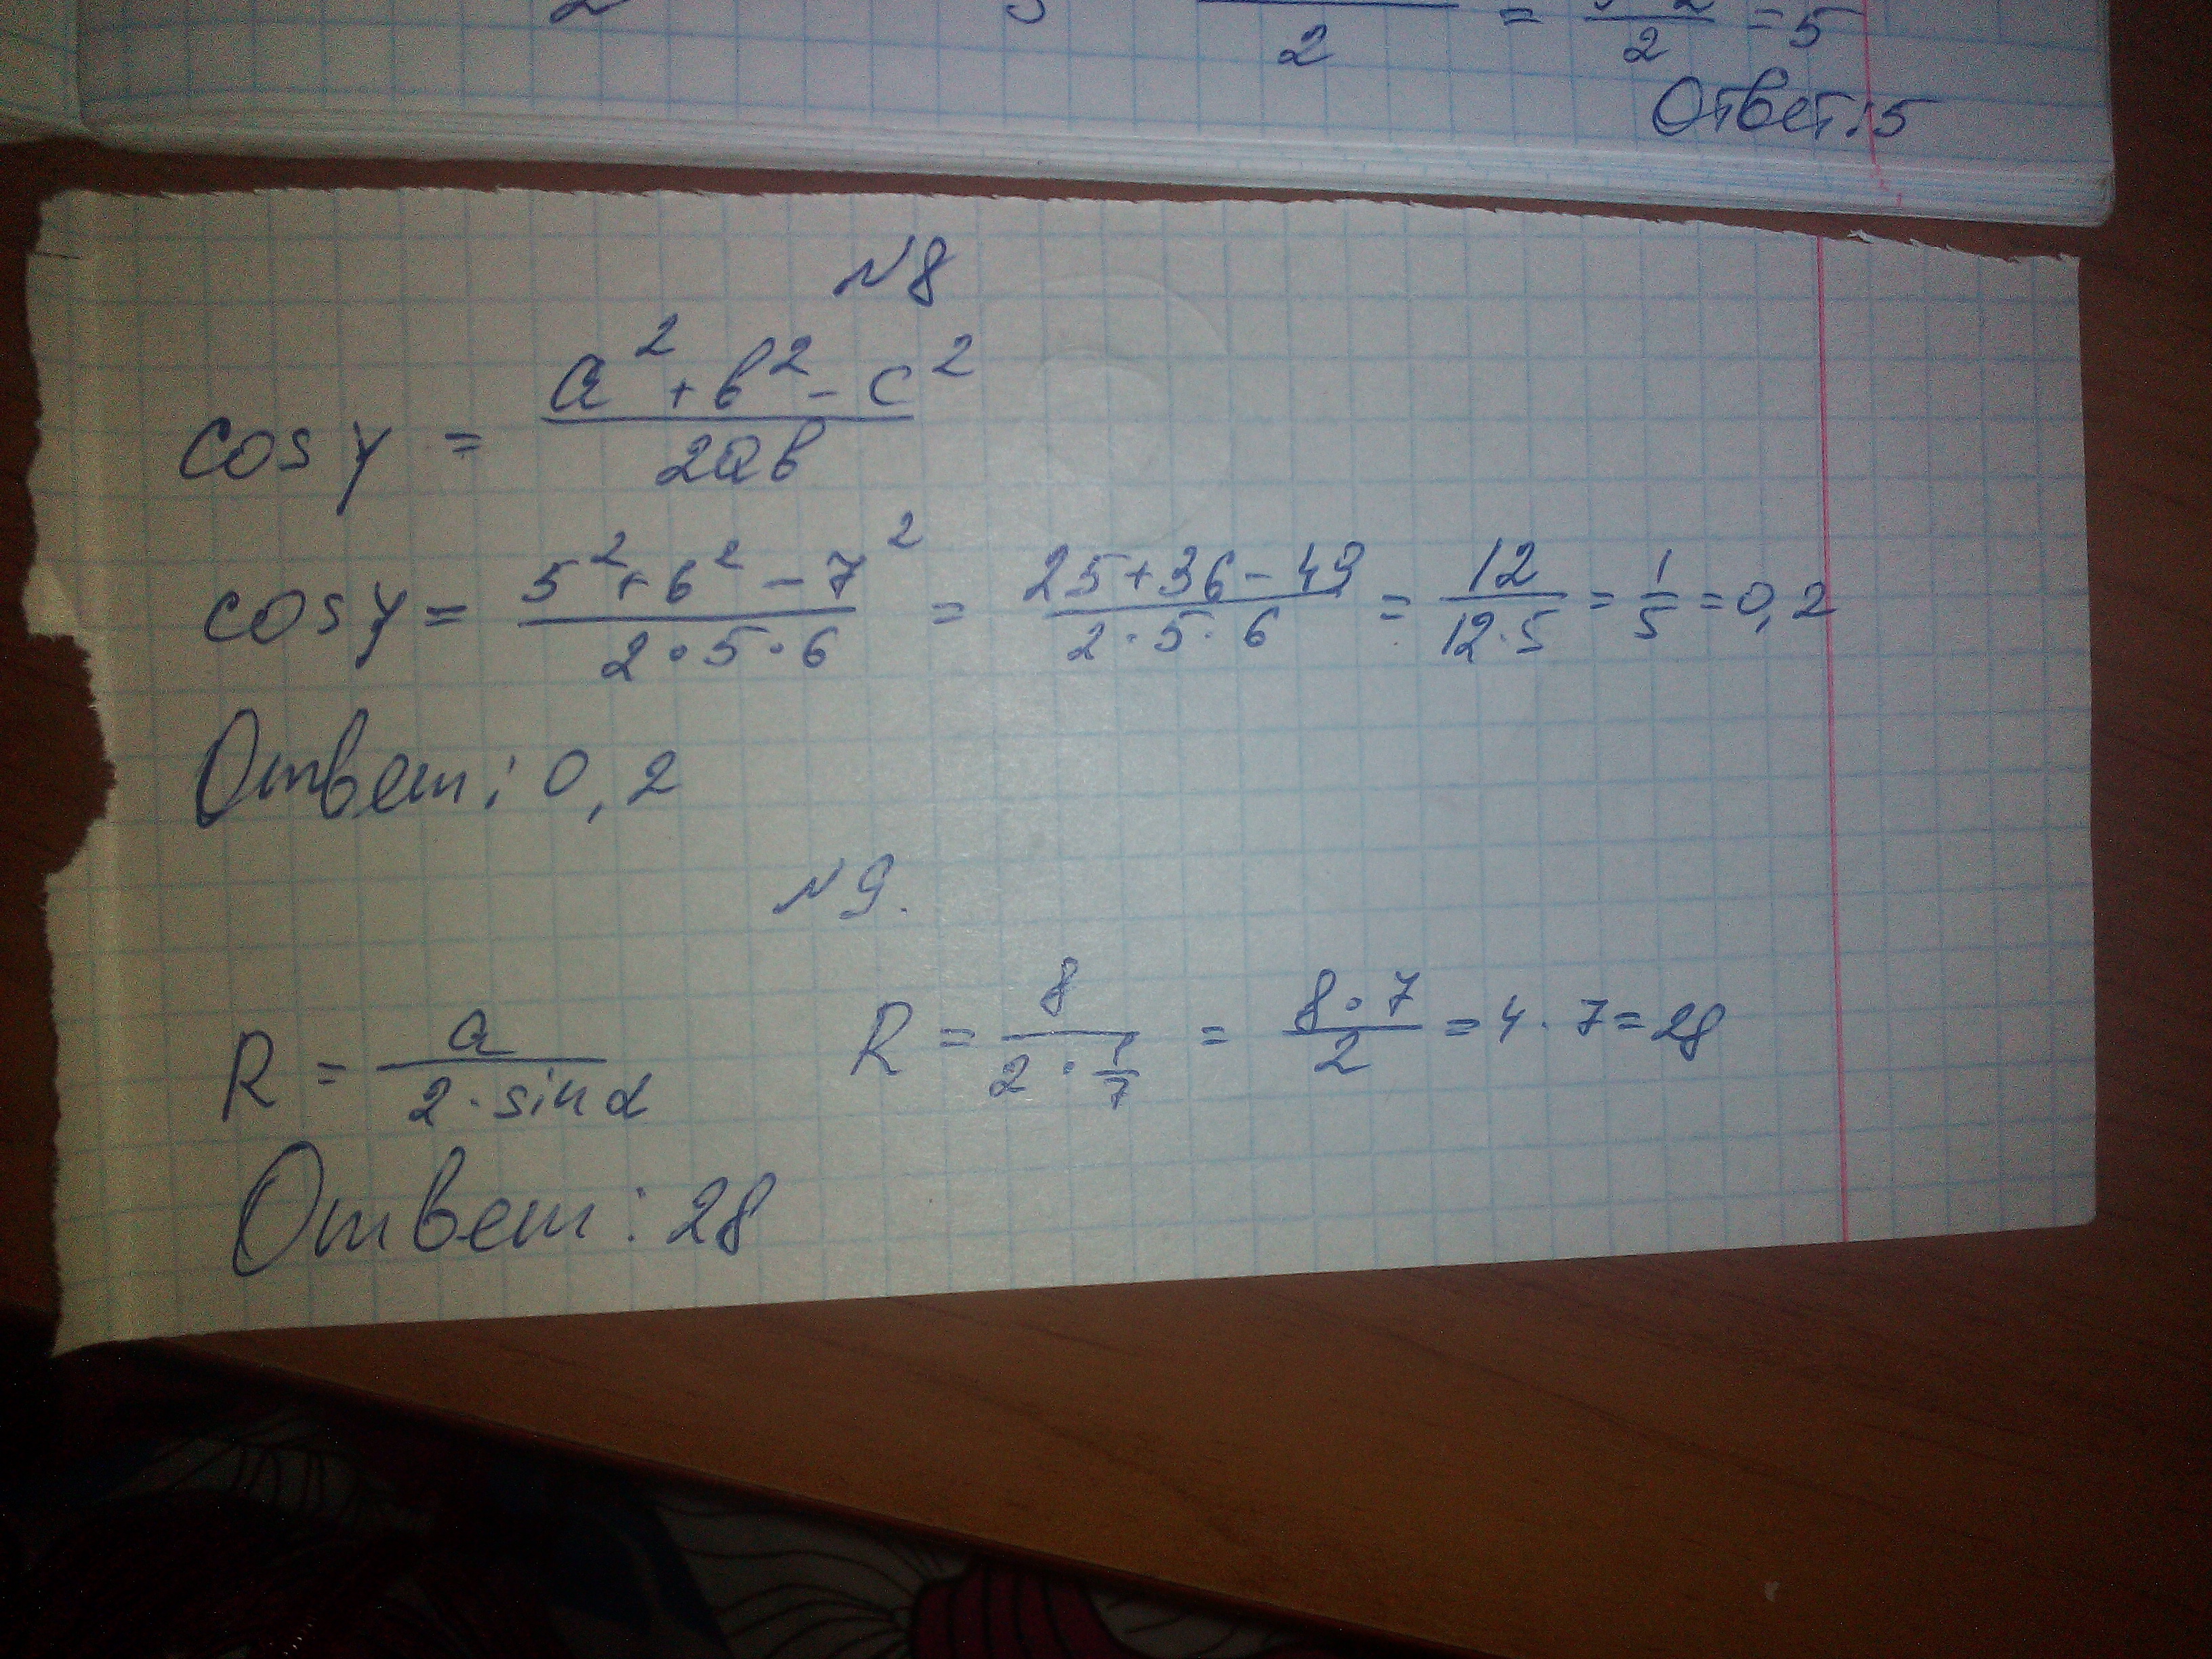 2 = /2 = 5
Ответ: 5
N8
cos γ = (a² + b² - c²)/(2ab)
cos γ = (5² + 6² - 7²)/(2·5·6) = (25+36-49)/(2·5·6) = 12/(12·5) = 1/5 = 0,2
Ответ: 0,2
N9.
R = a/(2·sin α) R = 8/(2·1/7) = (8·7)/2 = 4·7=28
Ответ: 28